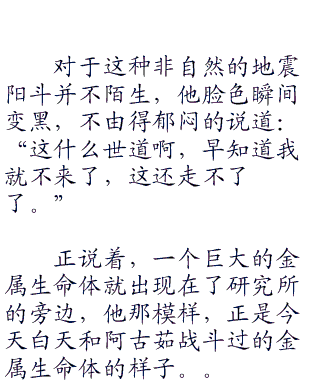 对于这种非自然的地震
阳斗并不陌生，他脸色瞬间
变黑，不由得郁闷的说道：
“这什么世道啊，早知道我
就不来了，这还走不了
了。”
正说着，一个巨大的金
属生命体就出现在了研究所
的旁边，他那模样，正是今
天白天和阿古茹战斗过的金
属生命体的样子。。